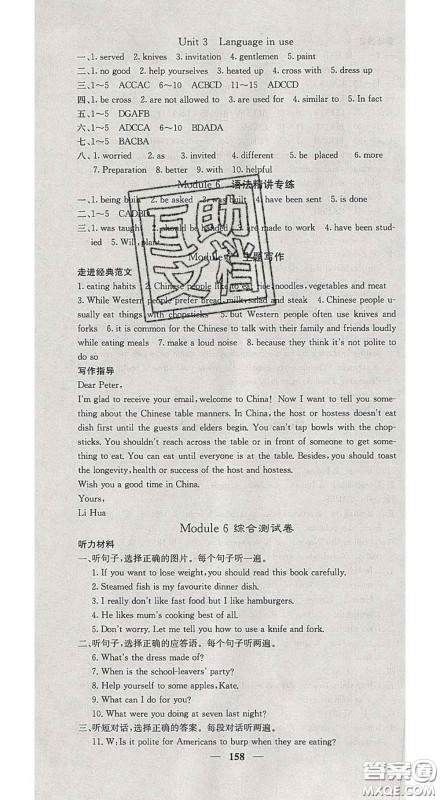 Unit 3 Language in use
一、1. served 2. knives 3. invitation 4. gentlemen 5. paint
二、1. no good 2. help yourselves 3. heated up 4. cross with 5. dress up
三、1~5 ACCAC 6~10 ACBCD 11~15 ADCCD
四、1. be cross 2. are not allowed to 3. are used for 4. similar to 5. In fact
五、1~5 DGAFB
六、1~5 ADCCA 6~10 BDADA
七、1~5 BACBA
八、1. worried 2. as 3. invited 4. different 5. be placed 6. more
7. Preparation 8. better 9. with 10. helpful
Module 6 语法精讲专练
一、1. being built 2. be asked 3. was built 4. have been sent 5. is done
二、1~5 CADBD
三、1. was taught 2. should be handed 3. are made 4. have been stud-
ied 5. Will, plant
Module 6 主题写作
走进经典范文
1. eating habits 2. Chinese people like to eat rice, noodles, vegetables and meat
3. While Western people prefer bread, milky salad and steak 4. Chinese people u-
sually eat things with chopsticks 5. but Western people often use knives and
forks 6. it is common for the Chinese to talk with their family and friends loudly
while eating meals 7. make a loud noise 8. because they think it's not polite to
do so
写作指导
Dear Peter,
I'm glad to receive your email, welcome to China! Now I want to tell you some-
thing about the Chinese table manners. In China, the host or hostess doesn't eat
dish first until the guests and elders begin. You can't tap bowls with the chop-
sticks. You shouldn't reach across the table or in front of someone to get some-
thing. You can eat until everyone is at the table. Besides, you should toast
the longevity, health or success of the host and hostess.
Wish you a good time in China.
Yours,
Li Hua
Module 6 综合测试卷
听力材料
一、听句子,选择正确的图片。每个句子听一遍。
1. If you want to lose weight, you should read this book carefully.
2. Steamed fish is my favourite dinner dish.
3. I really don't like fast food but I like hamburgers.
4. He likes mum's cooking best of all.
5. Don't worry. Let me tell you how to use a knife and fork.
二、听句子,选择正确的应答语。每个句子听两遍。
6. What's the dress made of?
7. When is the school-leavers' party?
8. Help yourself to some apples, Kate.
9. What can I do for you?
10. What were you doing at seven last night?
三、听短对话,选择正确的答案。每段对话听两遍。
11. W: Is it polite for Americans to burp when they are eating?
158
互助
文档
答案圈
MXQE.COM